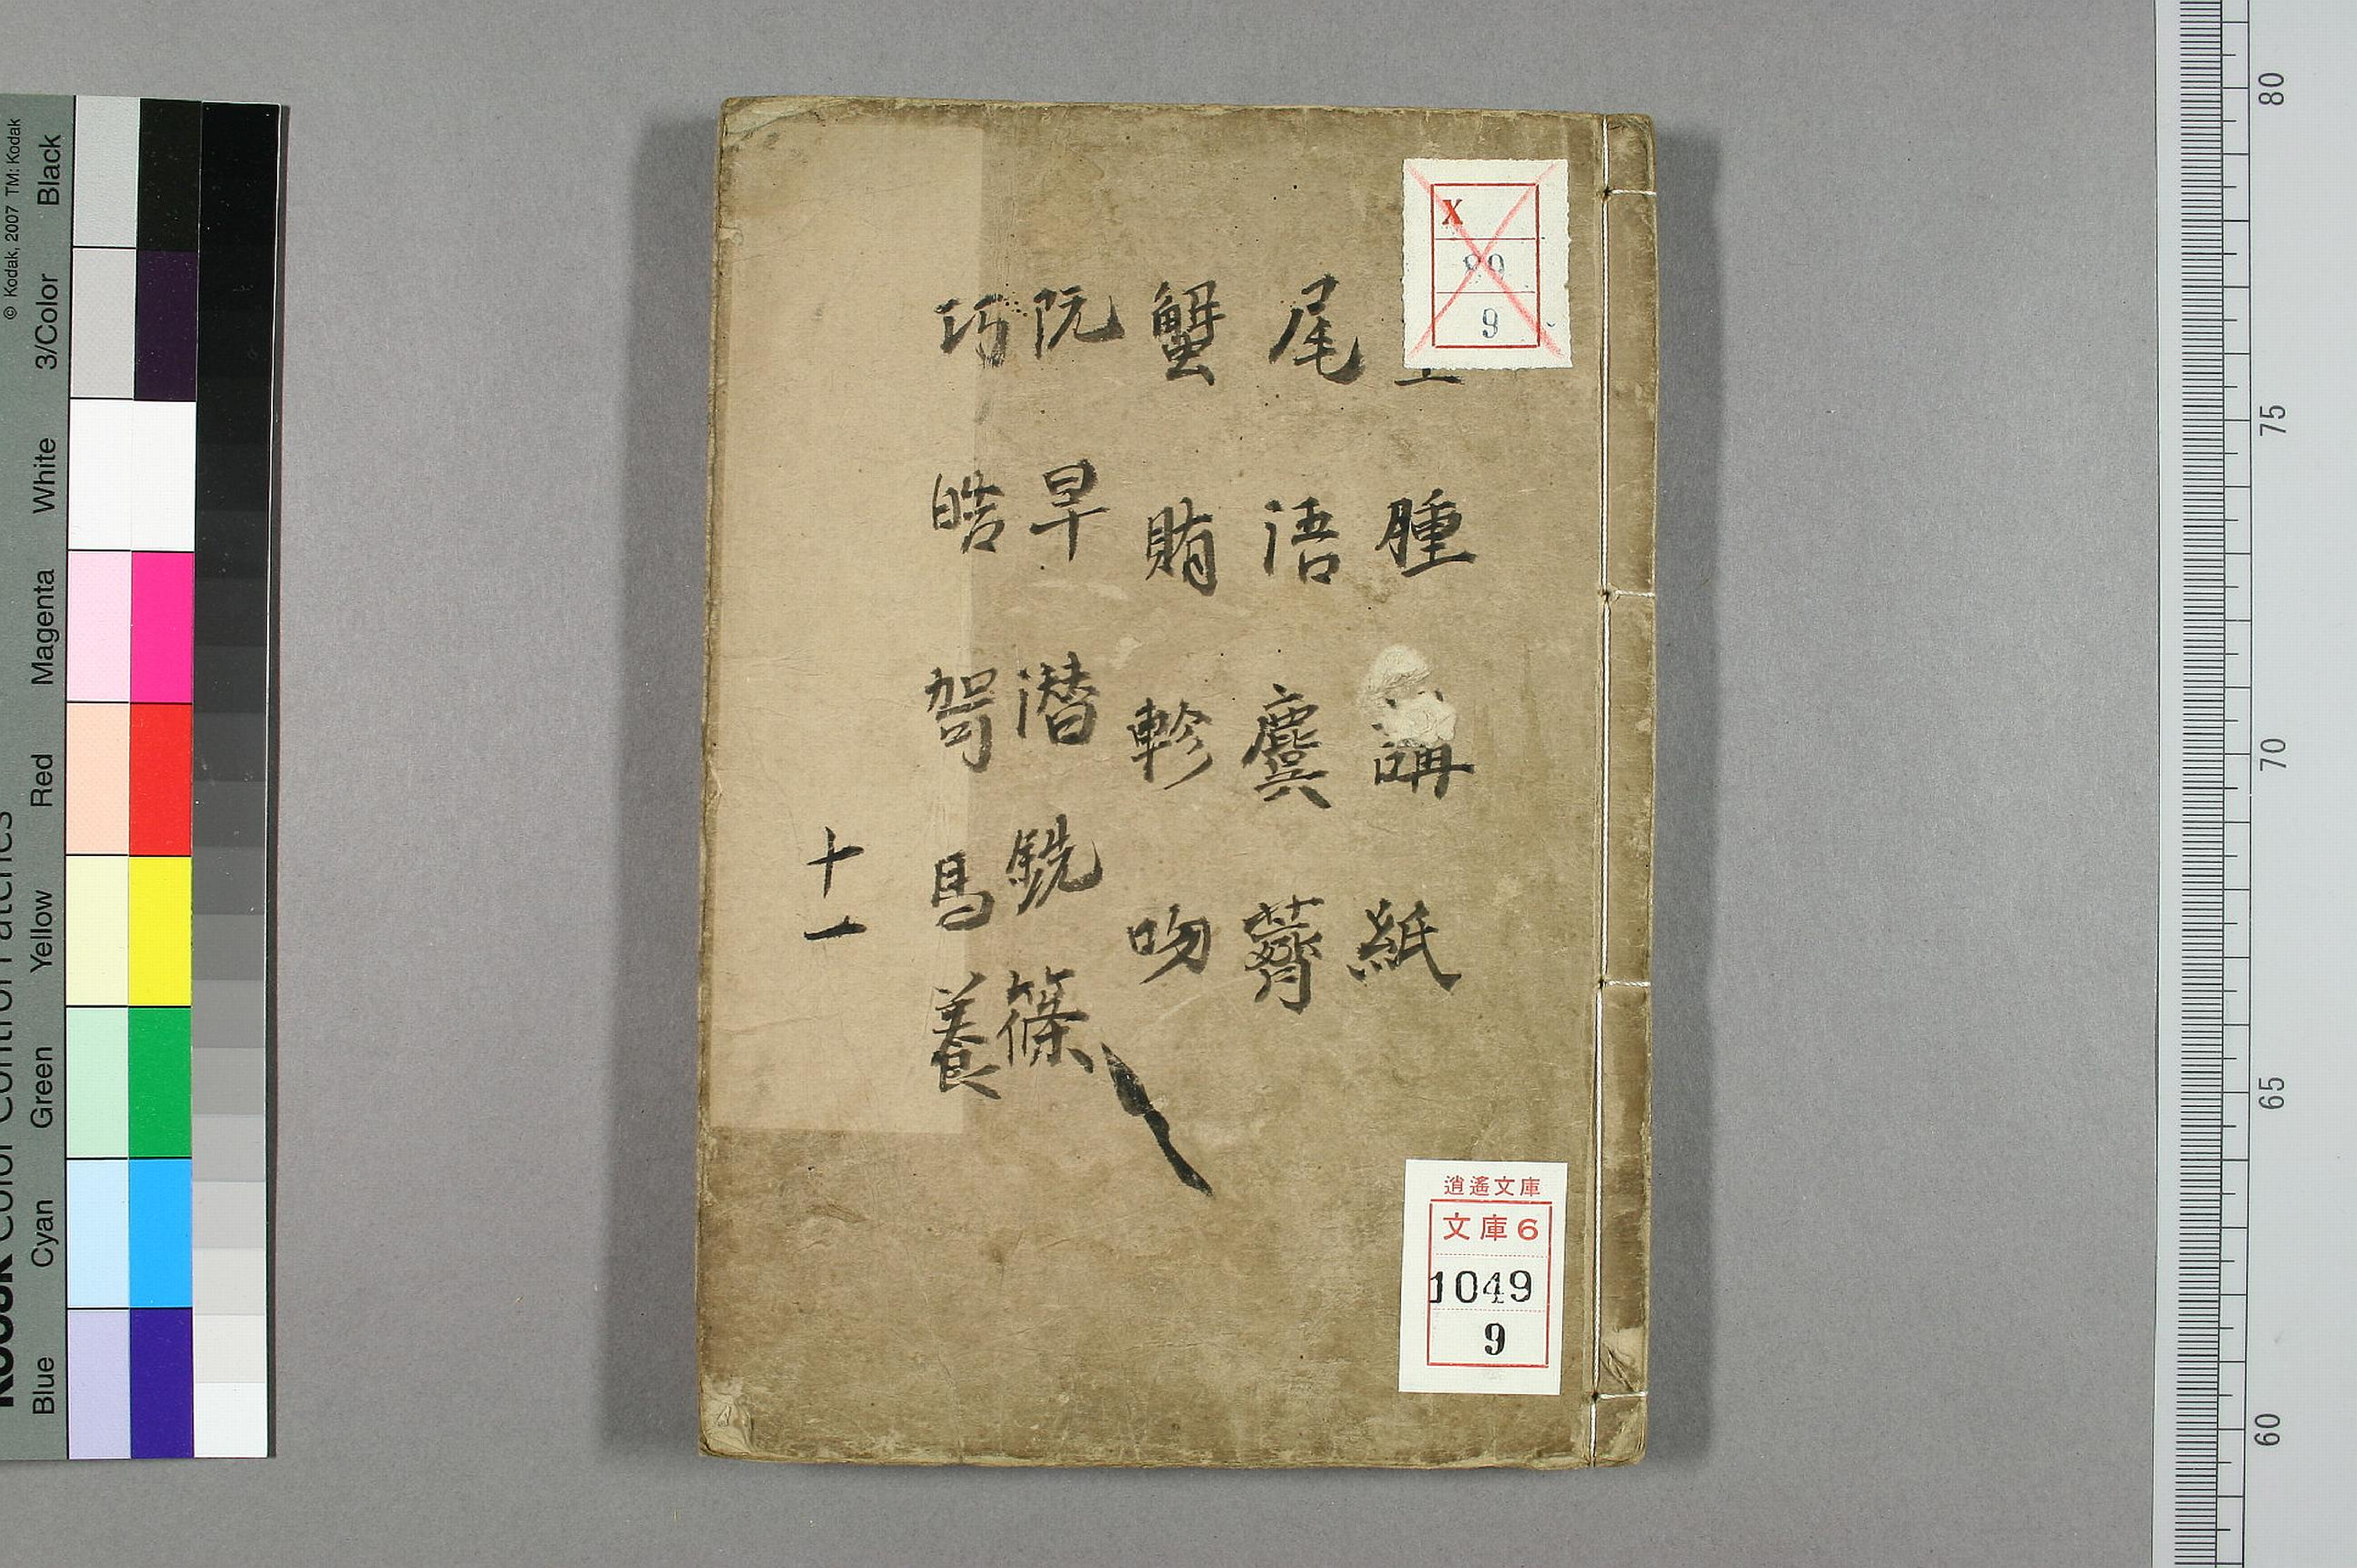 腫 講 紙
尾 語 麌 薺
蟹 賄 軫 吻
阮 旱 潜 銑 篠
巧 皓 哿 馬 養
十一
X
89
9
逍遙文庫
文庫6
1049
9
© Kodak, 2007 TM: Kodak
Blue Cyan Green Yellow Red Magenta White 3/Color Black
80
75
70
65
60